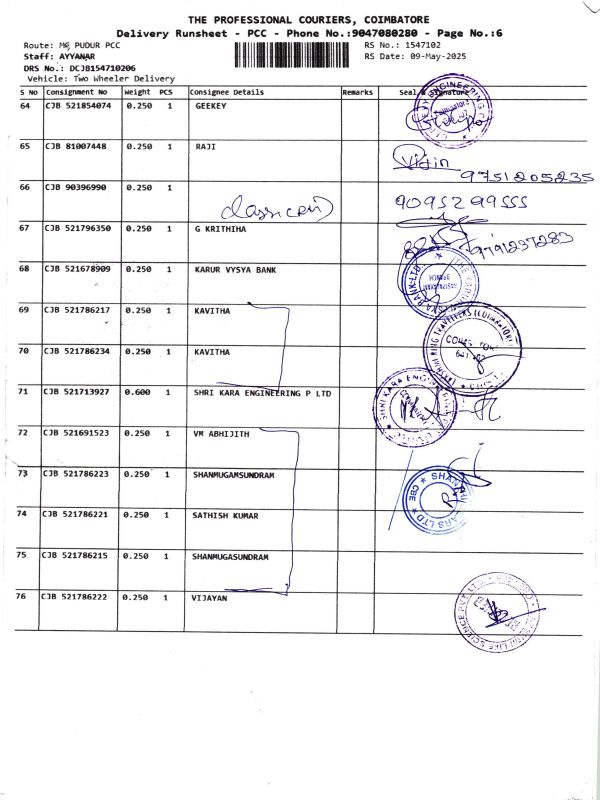 THE PROFESSIONAL COURIERS, COIMBATORE
Delivery Runsheet - PCC - Phone No.:9047080280 - Page No.:6
Route: MG PUDUR PCC RS No.: 1547102
Staff: AYYANAR RS Date: 09-May-2025
DRS No.: DCJB154710206
Vehicle: Two Wheeler Delivery
S No Consignment No Weight PCS Consignee Details Remarks Seal & Signature
64 CJB 521854074 0.250 1 GEEKEY
65 CJB 81007448 0.250 1 RAJI
9751205235
66 CJB 90396990 0.250 1 9095299555
67 CJB 521796350 0.250 1 G KRITHIHA
9791237283
68 CJB 521678909 0.250 1 KARUR VYSYA BANK
69 CJB 521786217 0.250 1 KAVITHA
70 CJB 521786234 0.250 1 KAVITHA
71 CJB 521713927 0.600 1 SHRI KARA ENGINEERING P LTD
72 CJB 521691523 0.250 1 VM ABHIJITH
73 CJB 521786223 0.250 1 SHANMUGAMSUNDRAM
74 CJB 521786221 0.250 1 SATHISH KUMAR
75 CJB 521786215 0.250 1 SHANMUGASUNDRAM
76 CJB 521786222 0.250 1 VIJAYAN